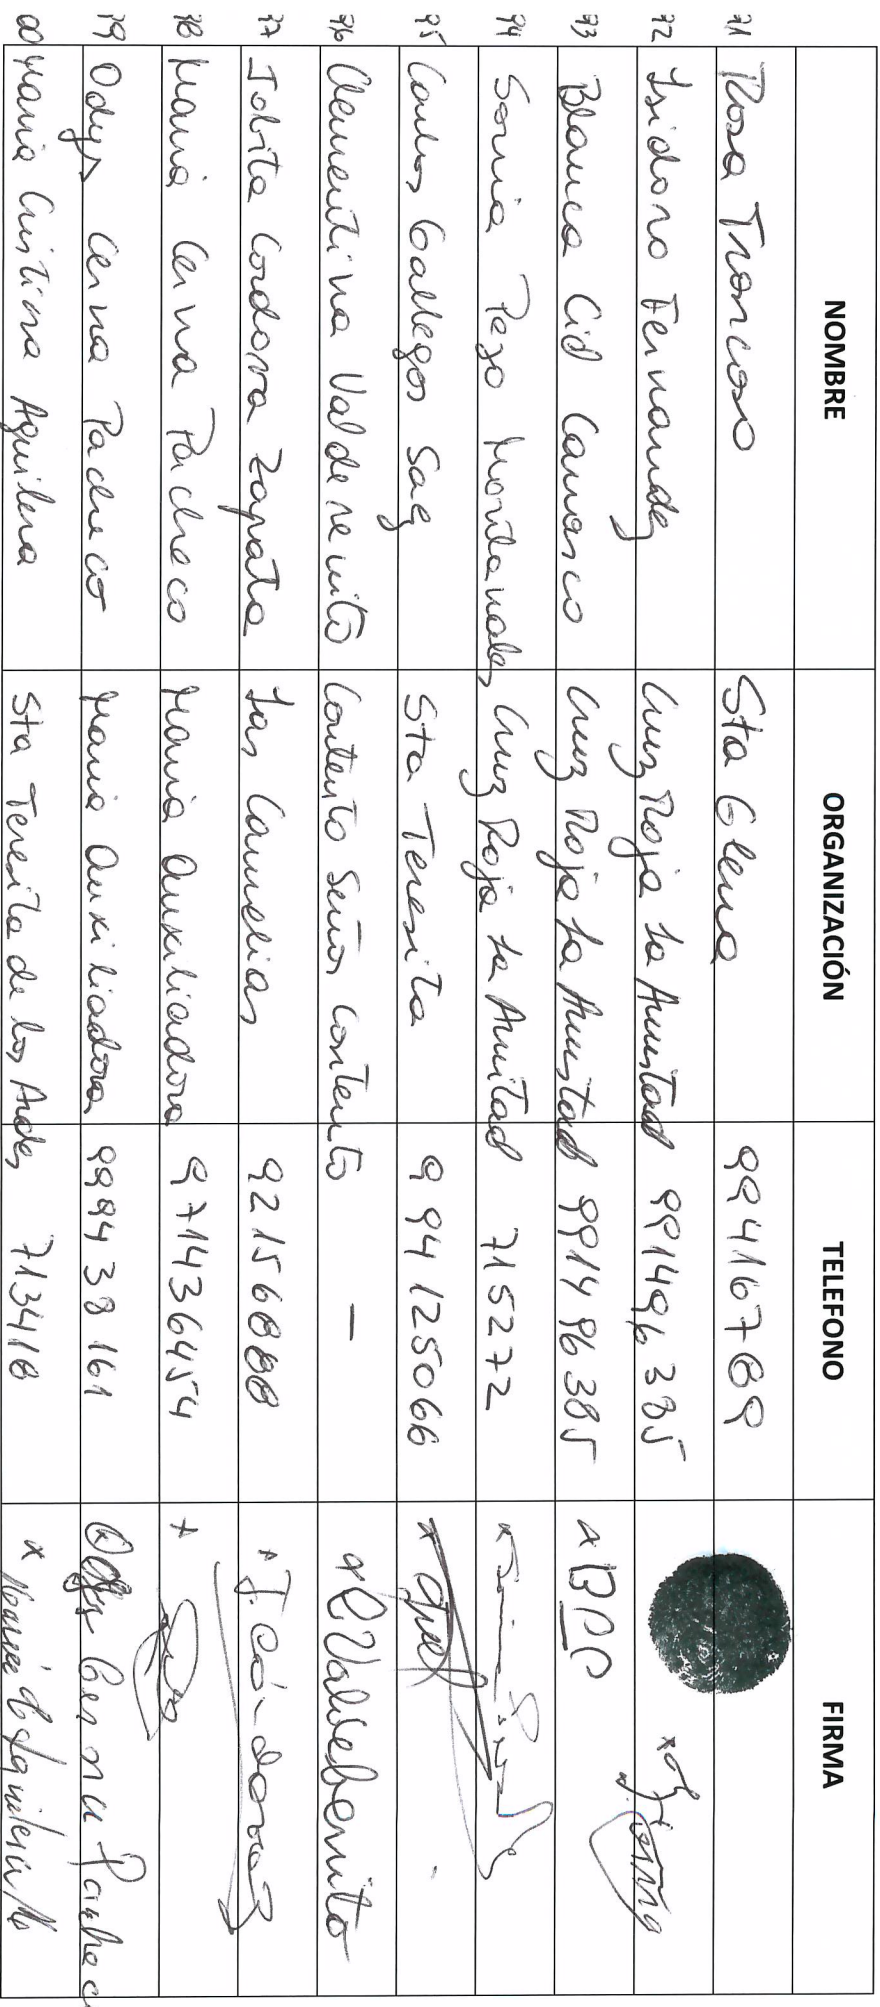 NOMBRE ORGANIZACIÓN TELEFONO FIRMA
71 Rosa Troncoso Sta Elena 99416789
72 Isidoro Fernandez Cruz Roja La Amistad 991496385
73 Blanca Cid Carrasco Cruz Roja La Amistad 991496385
74 Sonia Pezo Cruz Roja La Amitad 715272
75 Carlos Gallegos Saez Sta Teresita 994125066
76 Clementina Valdevenito Contento Señor Contento — x C Valdebenito
77 Jovita Cordova Zapata Las Camelias 92156888 x J. Cordova Z
78 Maria Cerna Pacheco Maria Auxiliadora 971436454 x
79 Odys Cerna Pacheco Maria Auxiliadora 999438161 Odys Cerna Pacheco
80 Maria Cristina Aguilera Sta Teresita de los Andes 713418 x Maria C Aguilera